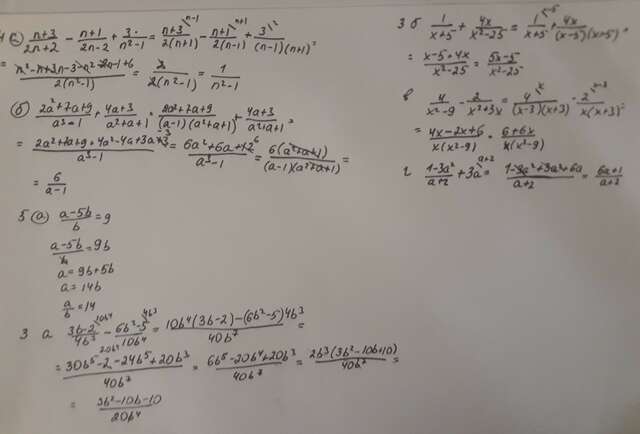 4 а) (n+3)/(2n+2) - (n+1)/(2n-2) + 3/(n²-1) = (n+3)/(2(n+1)) - (n+1)/(2(n-1)) + 3/((n-1)(n+1)) =
= 2(n²-1) = 2(n²-1) = 1/(n²-1)
б) (2a²+7a+9)/(a³-1) + (4a+3)/(a²+a+1) = (2a²+7a+9)/((a-1)(a²+a+1)) + (4a+3)/(a²+a+1) =
= (2a²+7a+9+4a²-4a+3a-3)/(a³-1) = (6a²+6a+6)/(a³-1) = 6(a²+a+1)/((a-1)(a²+a+1)) =
= 6/(a-1)
5 а) (a-5b)/b = 9
a-5b = 9b
a = 9b+5b
a = 14b
a/b = 14
3 а (3b-2)/(4b³) - (6b²-5)/(10b⁴) = (10b⁴(3b-2)-(6b²-5)4b³)/(40b⁷) =
= (30b⁵-2-24b⁵+20b³)/(40b⁷) = (6b⁵-20b⁴+20b³)/(40b⁷) = 2b³(3b²-10b+10)/(40b⁷) =
= (3b²-10b-10)/(20b⁴)
3 б 1/(x+5) + 4x/(x²-25) = 1/(x+5) + 4x/((x-5)(x+5)) =
= (x-5+4x)/(x²-25) = (5x-5)/(x²-25)
в 4/(x²-9) - 2/(x²+3x) = 4/((x-3)(x+3)) - 2/(x(x+3)) =
= (4x-2x+6)/(x(x²-9)) = (6+6x)/(x(x²-9))
г (1-3a²)/(a+2) + 3a = (1-3a²+3a²+6a)/(a+2) = (6a+1)/(a+2)